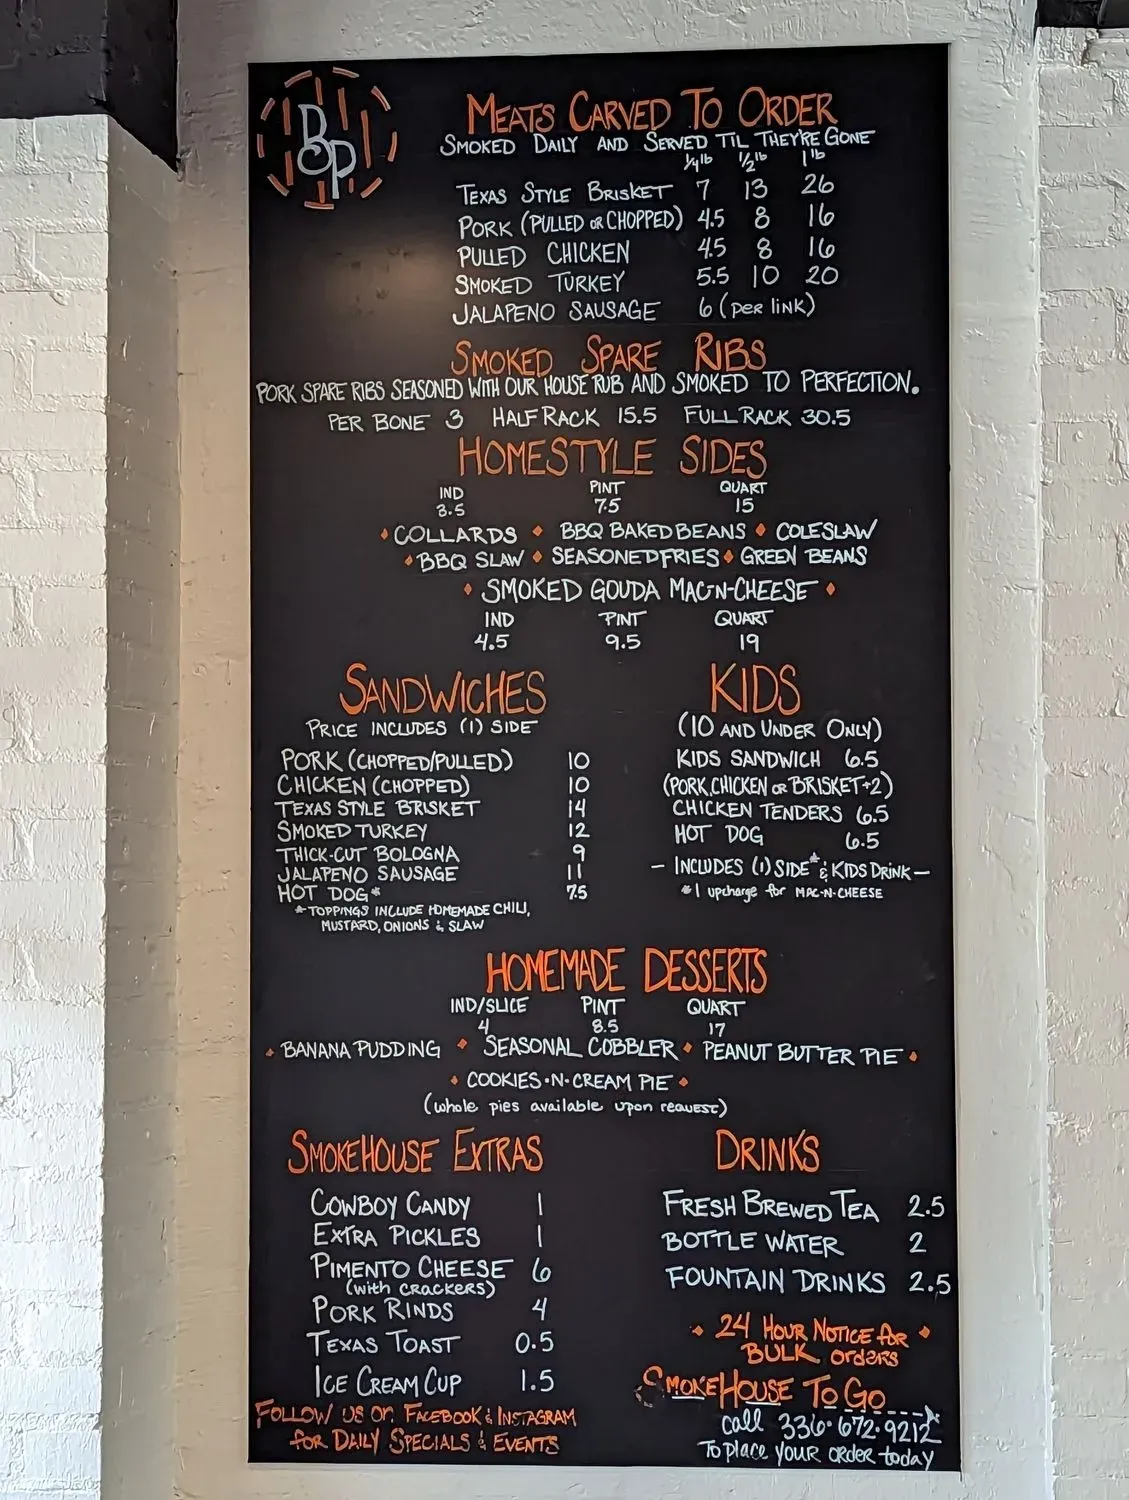 BOP
MEATS CARVED TO ORDER
SMOKED DAILY AND SERVED TIL THEY'RE GONE
1/4 lb 1/2 lb 1 lb
TEXAS STYLE BRISKET 7 13 26
PORK (PULLED OR CHOPPED) 4.5 8 16
PULLED CHICKEN 4.5 8 16
SMOKED TURKEY 5.5 10 20
JALAPENO SAUSAGE 6 (per link)
SMOKED SPARE RIBS
PORK SPARE RIBS SEASONED WITH OUR HOUSE RUB AND SMOKED TO PERFECTION.
PER BONE 3 HALF RACK 15.5 FULL RACK 30.5
HOMESTYLE SIDES
IND PINT QUART
3.5 7.5 15
• COLLARDS • BBQ BAKED BEANS • COLESLAW
• BBQ SLAW • SEASONED FRIES • GREEN BEANS
• SMOKED GOUDA MAC-N-CHEESE •
IND PINT QUART
4.5 9.5 19
SANDWICHES
PRICE INCLUDES (1) SIDE
PORK (CHOPPED/PULLED) 10
CHICKEN (CHOPPED) 10
TEXAS STYLE BRISKET 14
SMOKED TURKEY 12
THICK-CUT BOLOGNA 9
JALAPENO SAUSAGE 11
HOT DOG* 7.5
*TOPPINGS INCLUDE HOMEMADE CHILI,
MUSTARD, ONIONS & SLAW
KIDS
(10 AND UNDER ONLY)
KIDS SANDWICH 6.5
(PORK, CHICKEN OR BRISKET+2)
CHICKEN TENDERS 6.5
HOT DOG 6.5
- INCLUDES (1) SIDE* & KIDS DRINK -
*1 upcharge for MAC-N-CHEESE
HOMEMADE DESSERTS
IND/SLICE PINT QUART
4 8.5 17
• BANANA PUDDING • SEASONAL COBBLER • PEANUT BUTTER PIE •
• COOKIES-N-CREAM PIE •
(whole pies available upon request)
SMOKEHOUSE EXTRAS
COWBOY CANDY 1
EXTRA PICKLES 1
PIMENTO CHEESE 6
(with crackers)
PORK RINDS 4
TEXAS TOAST 0.5
ICE CREAM CUP 1.5
FOLLOW US ON FACEBOOK & INSTAGRAM
for DAILY SPECIALS & EVENTS
DRINKS
FRESH BREWED TEA 2.5
BOTTLE WATER 2
FOUNTAIN DRINKS 2.5
• 24 HOUR NOTICE for •
BULK orders
SMOKEHOUSE TO GO
call 336·672·9212
To place YOUR order today